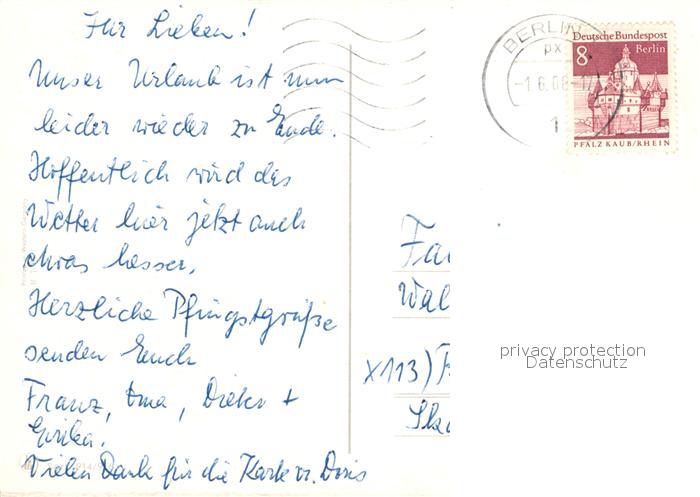 Ihr Lieben!
Unser Urlaub ist nun
leider wieder zu Ende.
Hoffentlich wird das
Wetter hier jetzt auch
etwas besser.
Herzliche Pfingstgrüße
senden Euch
Franz, Oma, Dieter +
Erika.
Vielen Dank für die Karte v. Doris
BERLIN
px
-1.6.68-17
1
Deutsche Bundespost
8 Berlin
PFALZ KAUB/RHEIN
Fa
Wal
X113)
privacy protection
Datenschutz